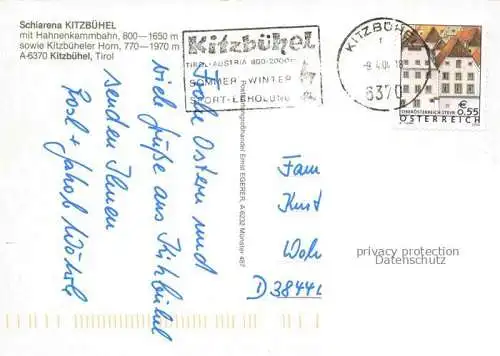 Schiarena KITZBÜHEL
mit Hahnenkammbahn, 800–1650 m
sowie Kitzbüheler Horn, 770–1970 m
A-6370 Kitzbühel, Tirol
Kitzbühel
TIROL-AUSTRIA 800-2000m
SOMMER-WINTER
SPORT-ERHOLUNG
KITZBÜHEL
1
-9.4.04-18
6370
€ 0,55
OBERÖSTERREICH STEYR
ÖSTERREICH
Frohe Ostern und
viele Grüße aus Kitzbühel
senden Ihnen
Rosl + Jakob
Postkartengroßhandel Ernst EGERER, A-6232 Münster 487
Fam
Kurt
Woh
D 3844
privacy protection
Datenschutz